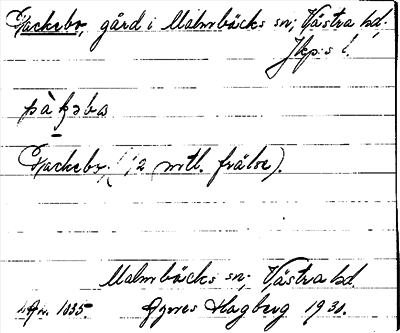 Hackebo, gård i Malmbäcks sn, Västra hd,
Jkp:s l.
Hackebo, 1/2 mtl. frälse).
Malmbäcks sn, Västra hd.
1035. Agnes Hagberg 1931.